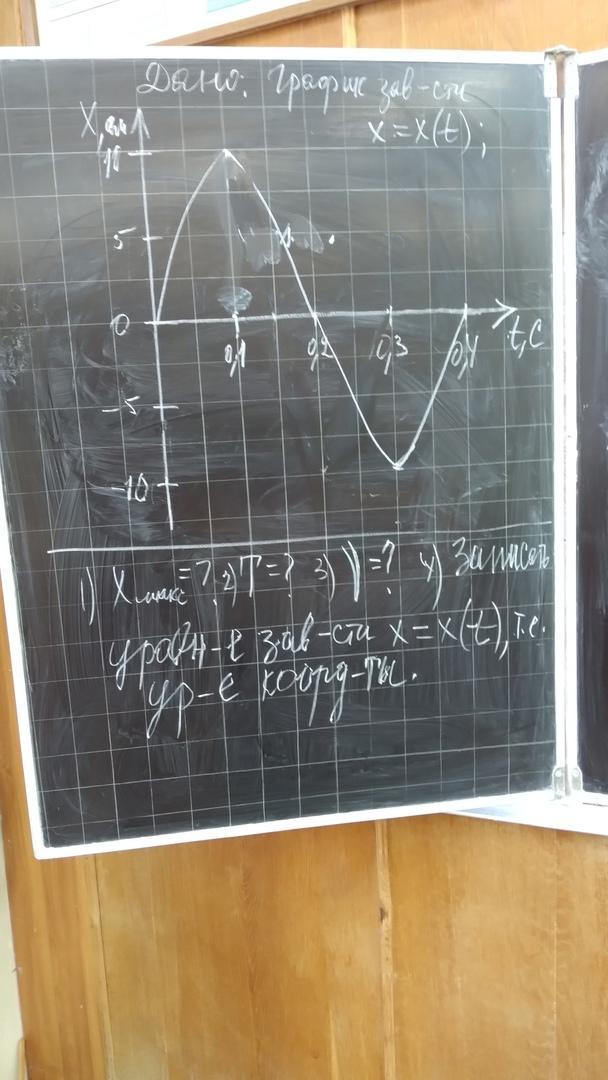 Дано: График зав-сти
x = x(t);
X, см
10
5
0
-5
-10
0,1
0,2
0,3
0,4
t, c
1) Xмакс = ? 2) T = ? 3) ν = ? 4) Записать
уравн-е зав-сти x = x(t), т.е.
ур-е коорд-ты.